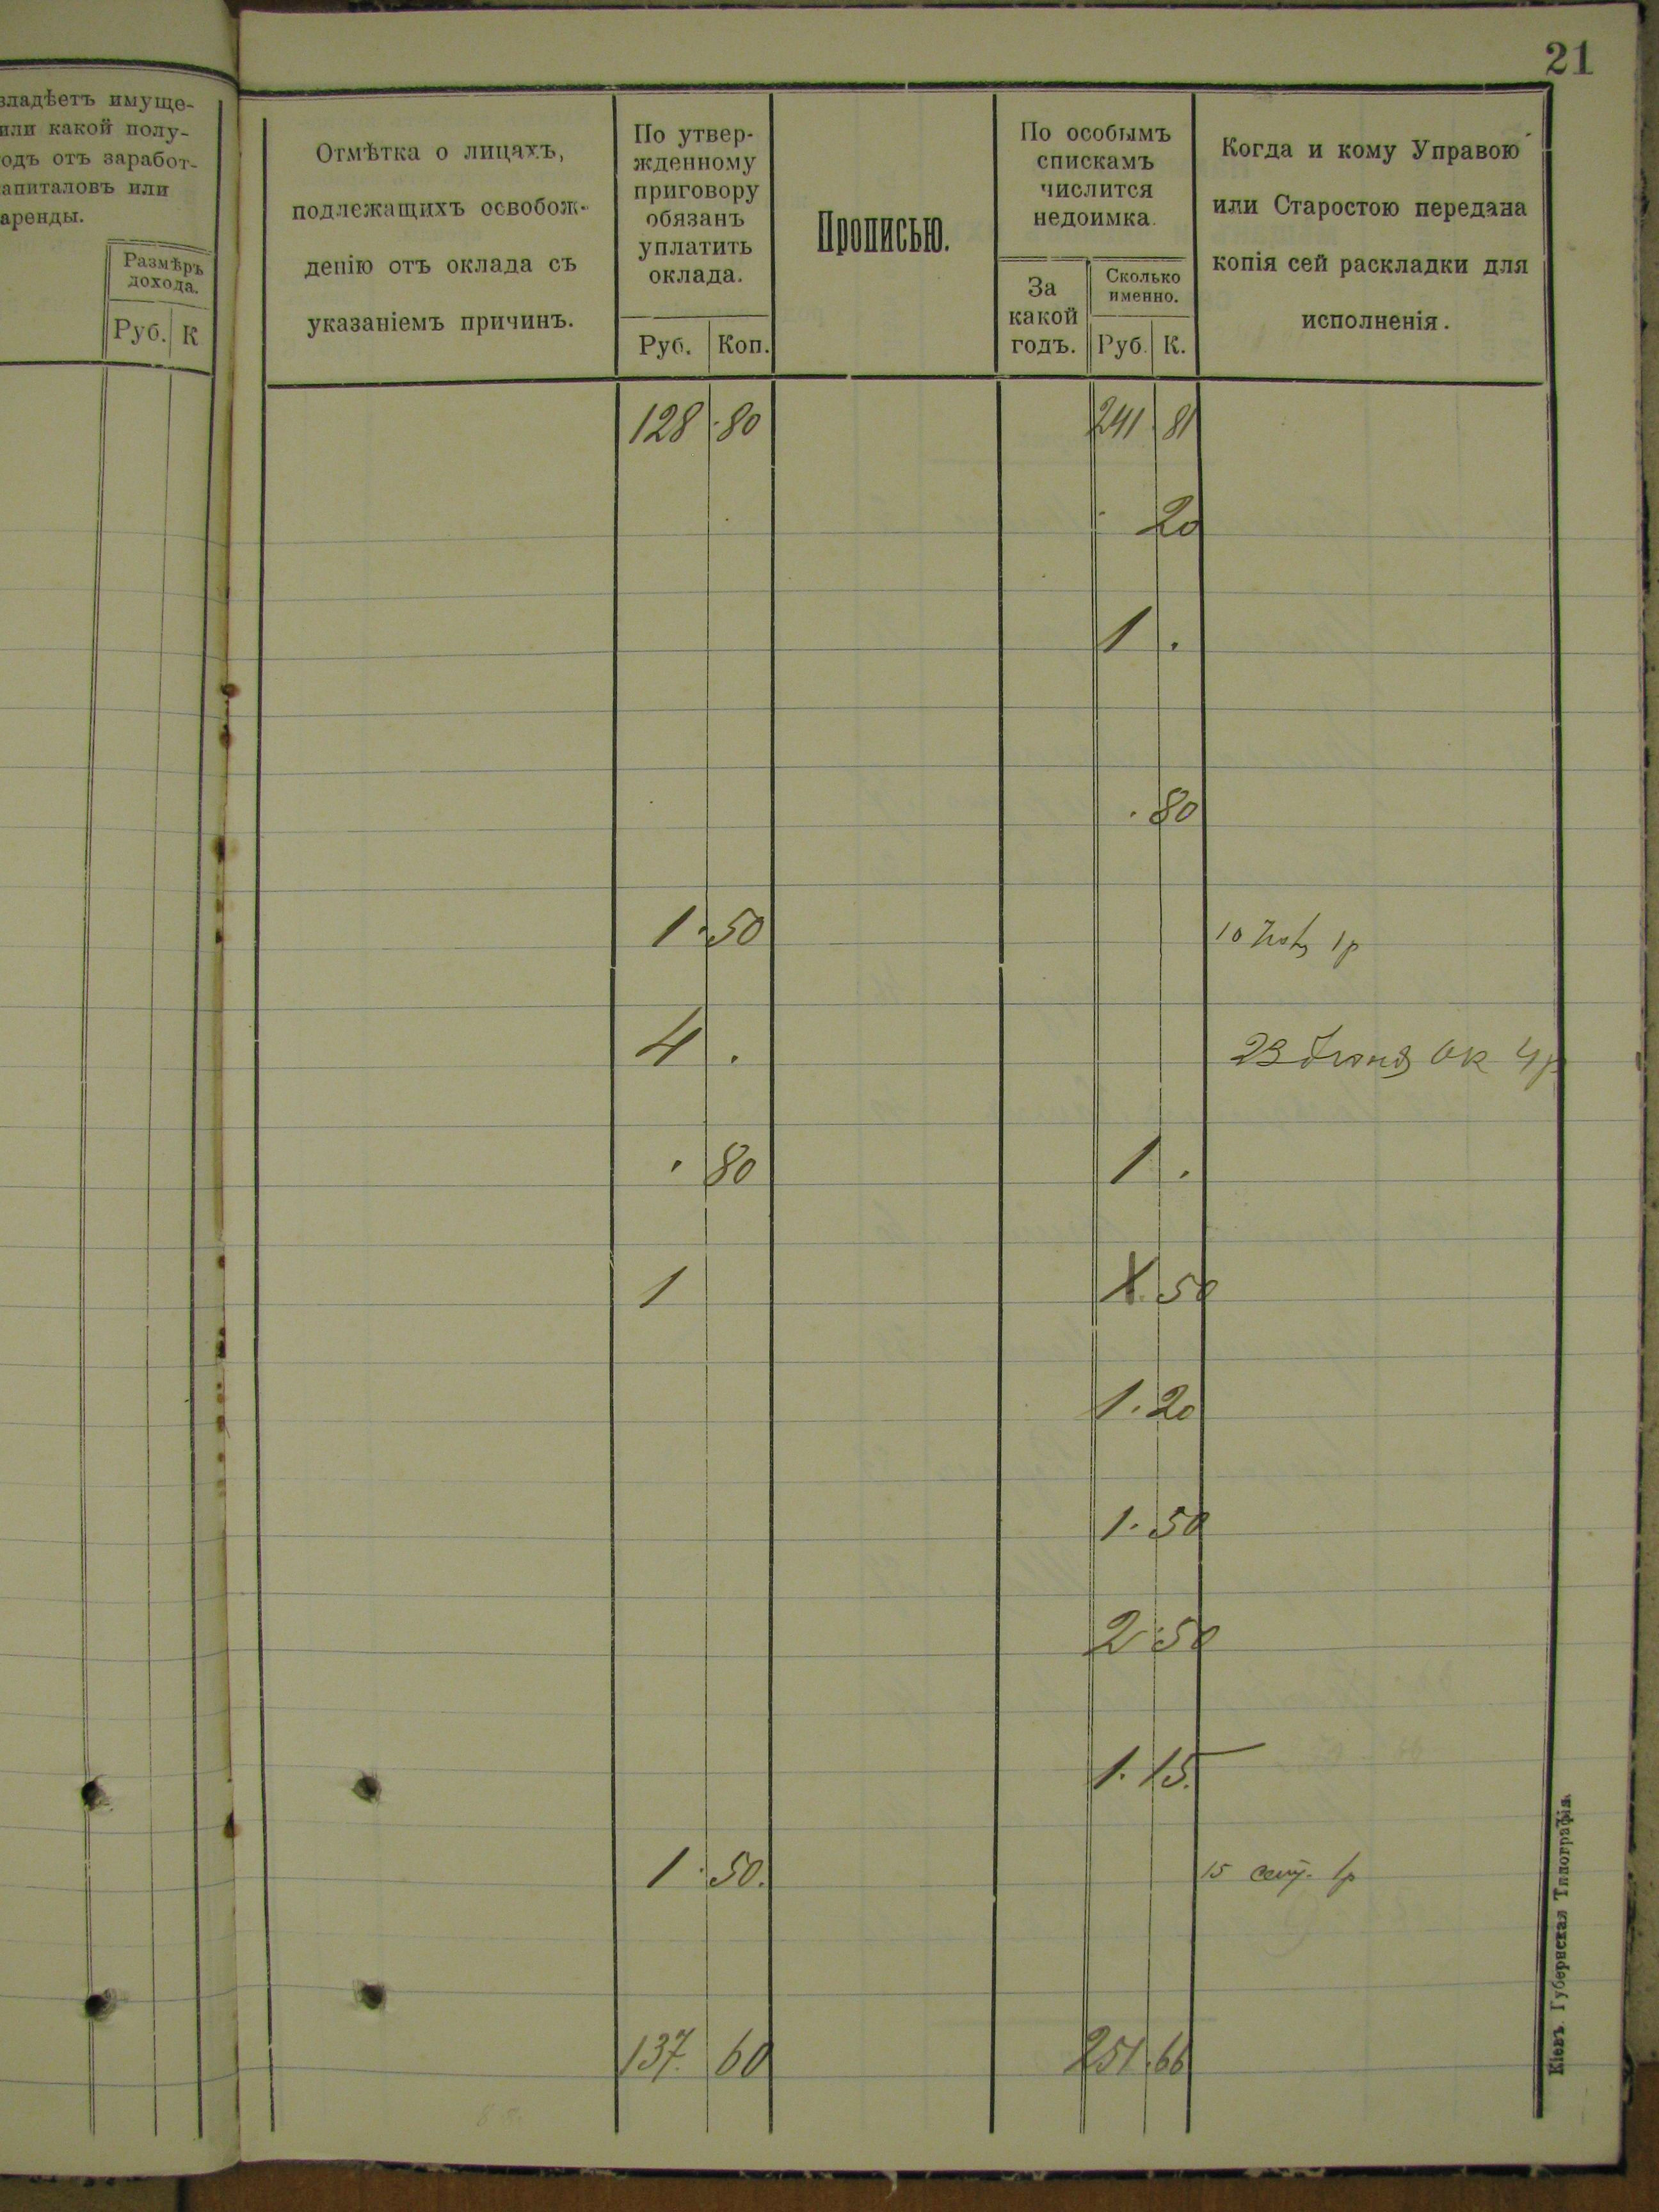 21
владѣетъ имуще-
или какой полу-
одъ отъ заработ-
апиталовъ или
аренды.
Размѣръ
дохода.
Руб. К
Отмѣтка о лицахъ,
подлежащихъ освобож-
денію отъ оклада съ
указаніемъ причинъ.
По утвер-
жденному
приговору
обязанъ
уплатить
оклада.
Руб. Коп.
Прописью.
По особымъ
спискамъ
числится
недоимка.
За
какой
годъ.
Сколько
именно.
Руб. К.
Когда и кому Управою
или Старостою передана
копія сей раскладки для
исполненія.
128 80 241 81
20
1 .
. 80
1 . 50 10 1р
4 . 23 Ок 4р
. 80 1 .
1 1. 50
1. 20
1. 50
2 50
1. 15.
1 . 50. 15 сент. 1р
137. 60 251. 66
Кіевъ. Губернская Типографія.